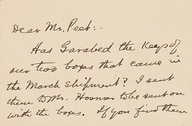 Dear Mr. Peet:-
Has Garabed the Keys of
our two boxes that came in
the March shipment? I sent
them D. Mr. Hoover to be sent on
with the boxes. If you find them